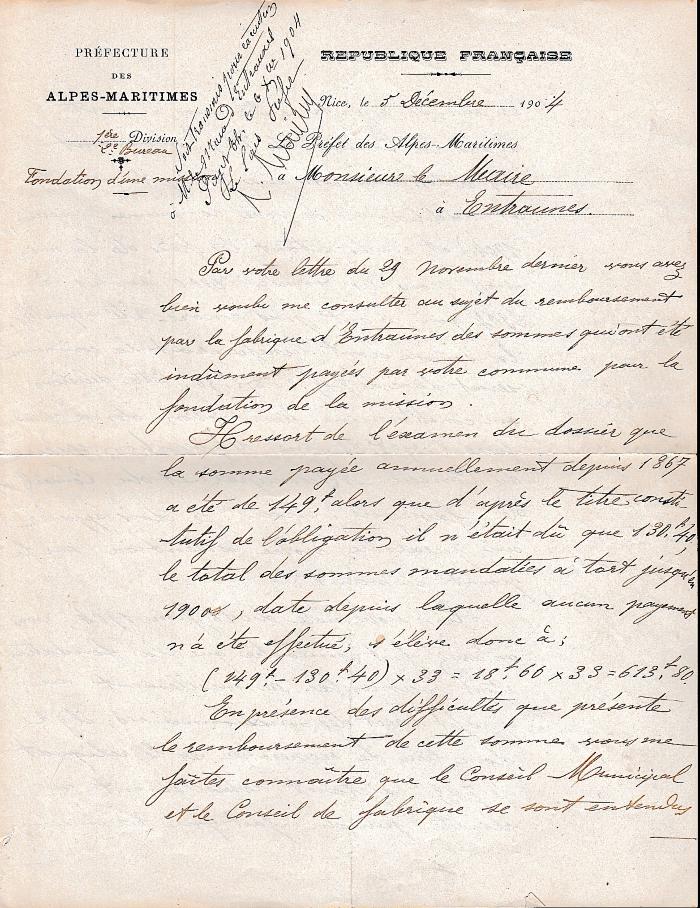 PRÉFECTURE
DES
ALPES-MARITIMES
1ère Division
2e Bureau
Fondation d'une mission
Soit transmis pour exécution
à M. le Maire d'Entraunes
le 6 Xbre 1904
REPUBLIQUE FRANÇAISE
Nice, le 5 Décembre 1904
Préfet des Alpes-Maritimes
à Monsieur le Maire
à Entraunes.
Par votre lettre du 29 Novembre dernier vous avez
bien voulu me consulter au sujet du remboursement
par la fabrique d'Entraunes des sommes qui ont été
indûment payées par votre commune pour la
fondation de la mission.
Il ressort de l'examen du dossier que
la somme payée annuellement depuis 1867
a été de 149f, alors que d'après le titre consti-
tutif de l'obligation il n'était dû que 130f.40,
le total des sommes mandatées à tort jusqu'en
1900, date depuis laquelle aucun payement
n'a été effectué, s'élève donc à:
(149f. - 130f.40) x 33 = 18f.60 x 33 = 613f.80
En présence des difficultés que présente
le remboursement de cette somme vous me
faites connaître que le Conseil Municipal
et le Conseil de fabrique se sont entendus